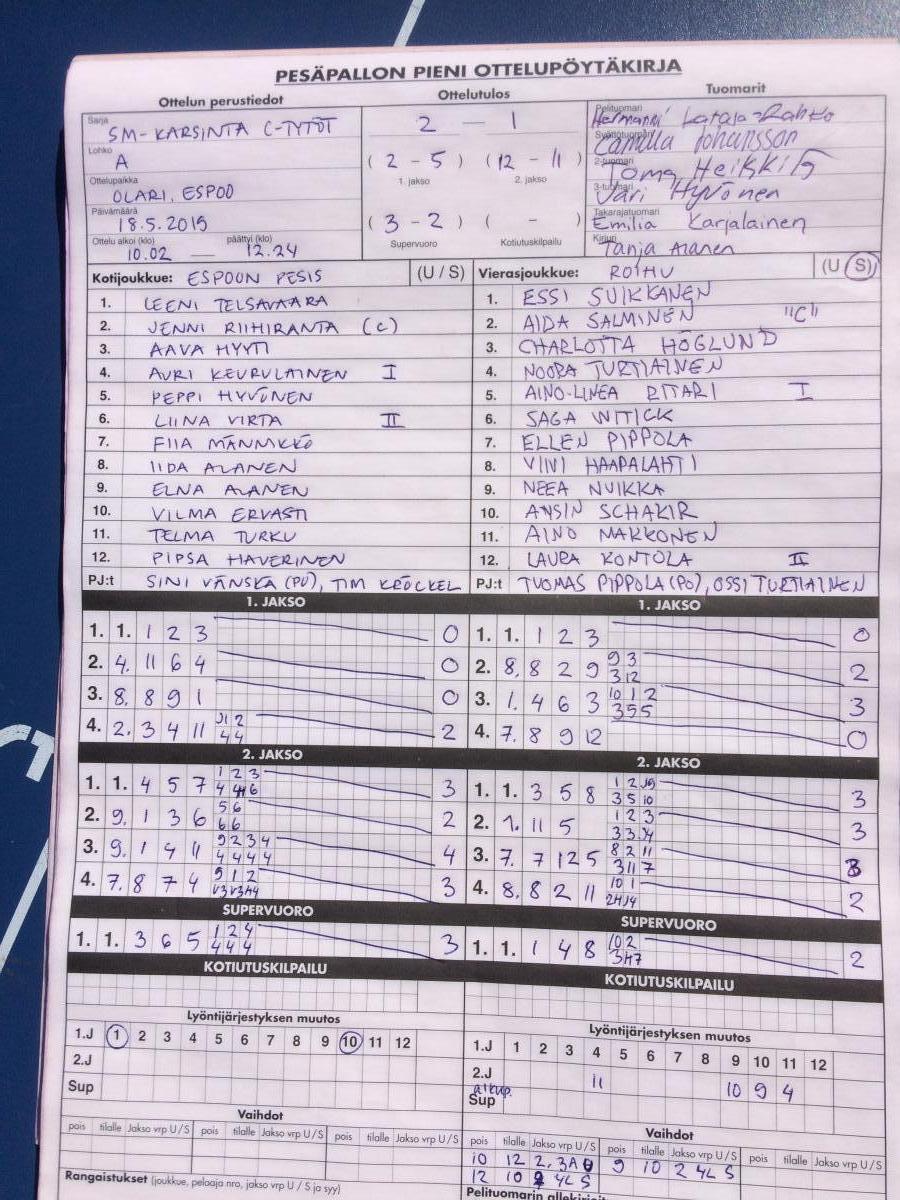 PESÄPALLON PIENI OTTELUPÖYTÄKIRJA
Ottelun perustiedot
Ottelutulos
Tuomarit
Sarja SM-KARSINTA C-TYTÖT
Lohko A
Ottelupaikka OLARI, ESPOO
Päivämäärä 18.5.2015
Ottelu alkoi (klo) päättyi (klo)
10.02 — 12.24
2 — 1
(2 - 5) (12 - 11)
1. jakso 2. jakso
(3 - 2) ( - )
Supervuoro Kotiutuskilpailu
Pelituomari Hermanni Lataja-Rahko
Syöttötuomari Camilla Johansson
2-tuomari Toma Heikkilä
3-tuomari Jari Hyvönen
Takarajatuomari Emilia Karjalainen
Kirjuri Tanja Alanen
Kotijoukkue: ESPOON PESIS (U / S)
1. LEENI TELSAVAARA
2. JENNI RIIHIRANTA (C)
3. AAVA HYYTI
4. AURI KEURULAINEN I
5. PEPPI HYVÖNEN
6. LIINA VIRTA II
7. FIIA MÄNNIKKÖ
8. IIDA ALANEN
9. ELNA ALANEN
10. VILMA ERVASTI
11. TELMA TURKU
12. PIPSA HAVERINEN
PJ:t SINI VÄNSKÄ (PJ), TIM KRÖCKEL
Vierasjoukkue: ROIHU (U / S)
1. ESSI SUIKKANEN
2. AIDA SALMINEN "C"
3. CHARLOTTA HÖGLUND
4. NOORA TURTIAINEN
5. AINO-LINEA RITARI I
6. SAGA WITICK
7. ELLEN PIPPOLA
8. VIIVI HAAPALAHTI
9. NEEA NUIKKA
10. ANSIN SCHAKIR
11. AINO MAKKONEN
12. LAURA KONTOLA II
PJ:t TUOMAS PIPPOLA (PJ), OSSI TURTIAINEN
1. JAKSO
1. 1. 1 2 3 0
2. 4. 11 6 4 0
3. 8. 8 9 1 0
4. 2. 3 4 11 2
1. JAKSO
1. 1. 1 2 3 0
2. 8. 8 2 9 9 3 2
3 12
3. 1. 4 6 3 10 1 2 3
3 5 5
4. 7. 8 9 12 0
2. JAKSO
1. 1. 4 5 7 1 2 3 3
2. 9. 1 3 6 5 6 2
6 6
3. 9. 1 4 11 9 2 3 4 4
4 4 4 4
4. 7. 8 7 4 9 1 2 3
2. JAKSO
1. 1. 3 5 8 3
3 5 10
2. 1. 11 5 1 2 3 3
3. 7. 7 12 5 8 2 11 3
3 11 7
4. 8. 8 2 11 10 1 2
SUPERVUORO
1. 1. 3 6 5 1 2 4 3
4 4 4
SUPERVUORO
1. 1. 1 4 8 10 2 2
KOTIUTUSKILPAILU
KOTIUTUSKILPAILU
Lyöntijärjestyksen muutos
1.J 1 2 3 4 5 6 7 8 9 10 11 12
2.J
Sup
Lyöntijärjestyksen muutos
1.J 1 2 3 4 5 6 7 8 9 10 11 12
2.J 11 10 9 4
alkup.
Sup
Vaihdot
pois tilalle Jakso vrp U / S pois tilalle Jakso vrp U / S pois tilalle Jakso vrp U / S
Vaihdot
pois tilalle Jakso vrp U / S pois tilalle Jakso vrp U / S pois tilalle Jakso vrp U / S
10 12 2. 3A 9 10 2 4L S
12 10 2 4L S
Rangaistukset (joukkue, pelaaja nro, jakso vrp U / S ja syy)
Pelituomarin